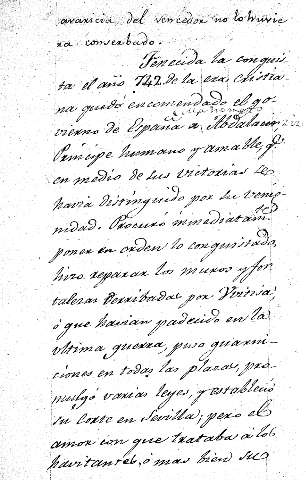 avaricia del vencedor no lo huvie
ra conserbado.
Fenecida la conquis
ta el año 742 de la era christia
na quedó encomendado el go-
vierno de España a Abdalaciz,
Principe humano y amable, qe.
en medio de sus victorias se
havia distinguido por su venig
nidad. Procuró inmediatamte.
poner en orden lo conquistado,
hizo reparar los muros y for
talezas derribadas por Vvitiza,
ó que havian padecido en la
ultima guerra, puso guarni-
ciones en todas las plazas, pro
mulgó varias leyes, y estableció
su Corte en Sevilla; pero el
amor con que trataba á los
havitantes, ó mas bien su